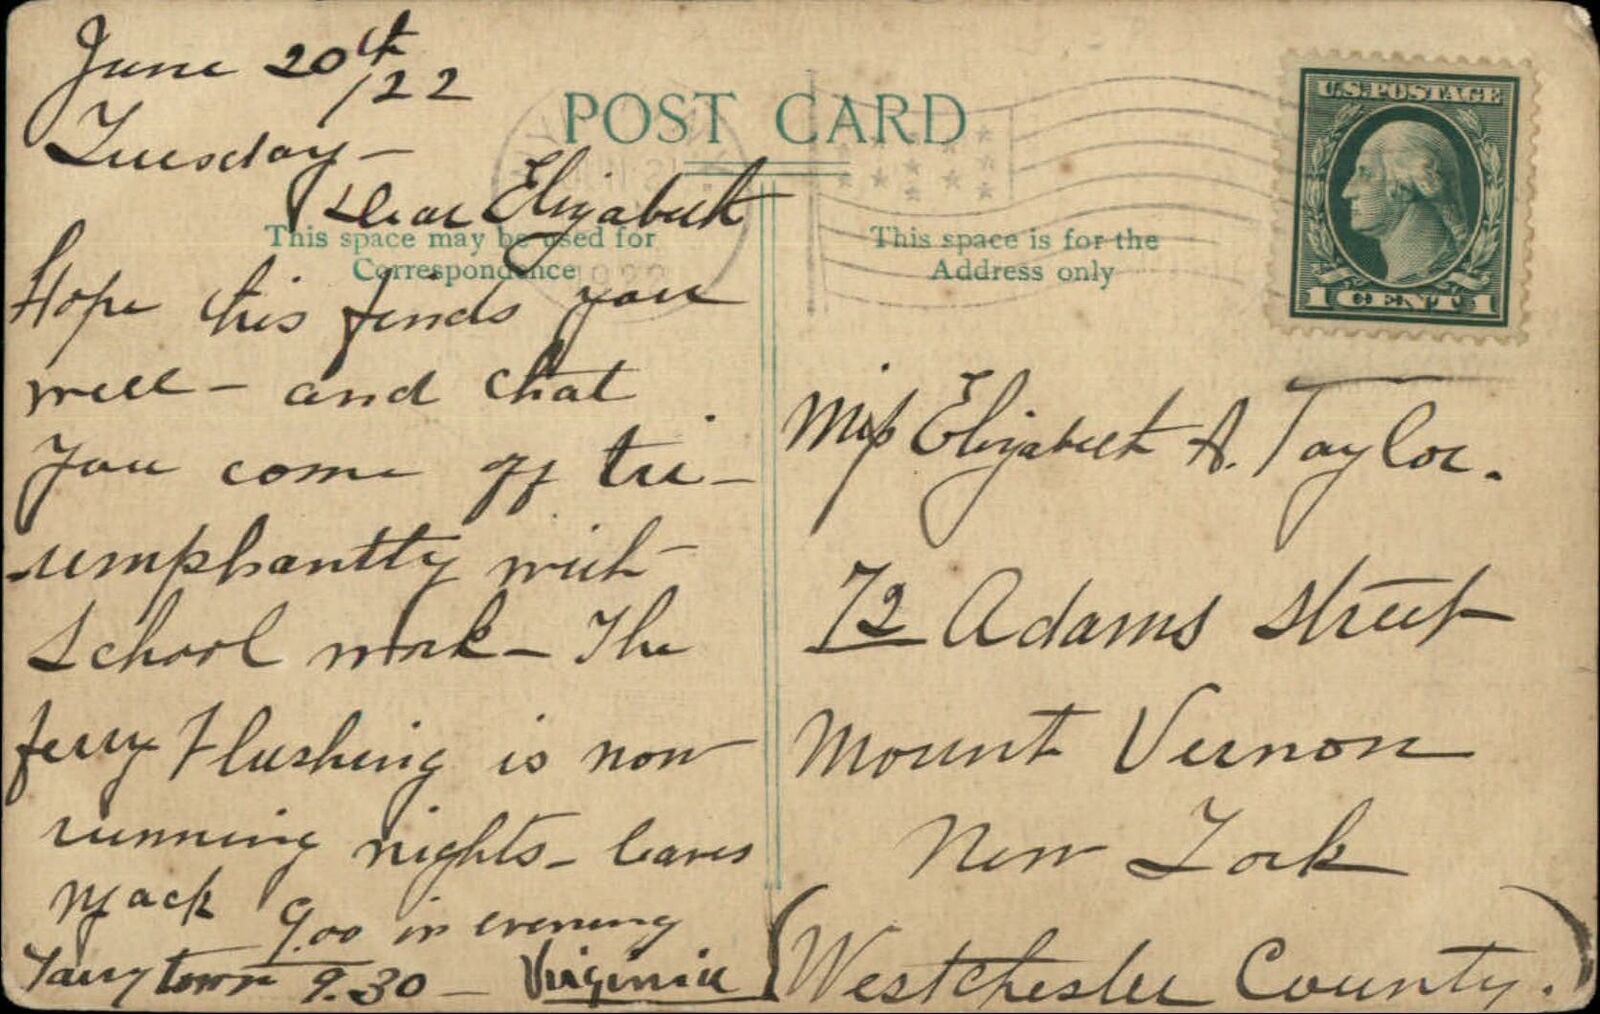 June 20th
/22
Tuesday -
Dear Elizabeth
Hope this finds you
well - and that
you come off tri-
umphantly with
School work - The
ferry Flushing is now
running nights - leaves
Nyack 9.00 in evening
Tarrytown 9.30 - Virginia
POST CARD
This space may be used for
Correspondence
This space is for the
Address only
U.S. POSTAGE
1 CENT 1
1922
Miss Elizabeth A. Taylor.
72 Adams Street
Mount Vernon
New York
(Westchester County.)